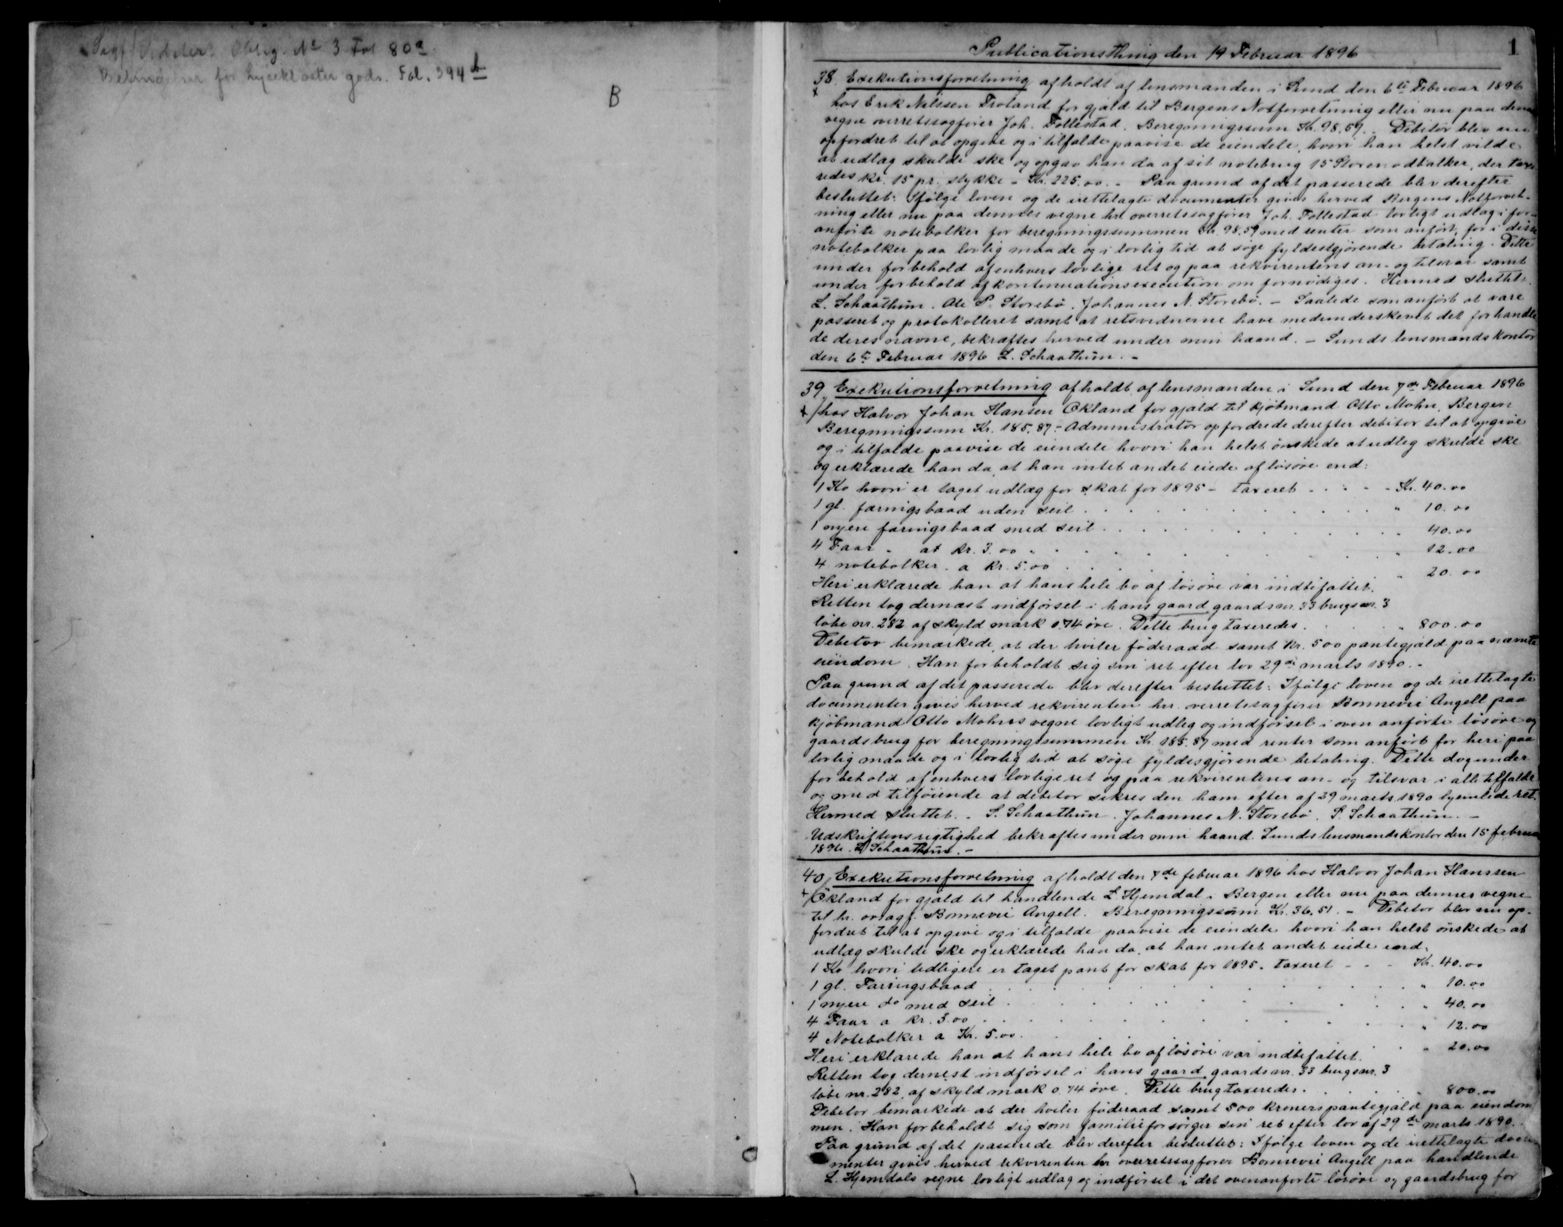 Oblig. No 3 Fol 80a
for Lysekloster gods. Fol. 394 b
B
1
Publicationsthing den 14 Februar 1896
38. Exekutionsforretning afholdt af lensmanden i Sund den 6te Februar 1896
hos Erik Nilssen Troland for gjæld til Bergens Notforretning eller nu paa dennes
vegne overretssagfører Joh. Tollestad. Beregningssum Kr. 98,59. Debitor blev nu
opfordret til at opgive og i tilfælde paavise de eiendele, hvori han helst vilde
at udlæg skulde ske og opgav han da af sit notebrug 15 Storenodbolker, der taxe-
redes kr. 15 pr. stykke - Kr. 225.00. - Paa grund af det passerede blev derefter
besluttet: Ifølge loven og de irettelagte documenter gives herved Bergens Notforret-
ning eller nu paa dennes vegne hr. overretssagfører Joh. Tollestad lovligt udlæg i for-
anførte notebolker for beregningssummen Kr. 98,59 med renter som anført, for i disse
notebolker paa lovlig maade og i lovlig tid at søge fyldestgjørende betaling. Dette
under forbehold af enhvers lovlige ret og paa rekvirentens an- og tilsvar samt
under forbehold af kontinuationsexecution om fornødiges. Hermed sluttet.
L. Schaathun. Ole P. Storebø. Johannes N. Storebø. - Saaledes som anført at være
passeret og protokolleret samt at retsvidnerne have medunderskrevet det forhandle-
de deres navne, bekræftes herved under min haand. - Sunds lensmandskontor
den 6te Februar 1896 L. Schaathun. -
39. Exekutionsforretning afholdt af lensmanden i Sund den 7de Februar 1896
hos Halvor Johan Hansen Økland for gjæld til kjøbmand Otto Mohr, Bergen
Beregningssum Kr. 185,87 - Administrator opfordrede derefter debitor til at opgive
og i tilfælde paavise de eiendele hvori han helst ønskede at udlæg skulde ske
og erklærede han da at han intet andet eiede af løsøre end:
1 Ko hvori er taget udlæg for skat for 1895 - taxeret . . . . Kr. 40.00
1 gl. færingsbaad uden seil . . . . " 10.00
1 nyere færingsbaad med seil . . . . " 40.00
4 Faar - at kr. 3.00 . . . . " 12.00
4 notebolker a kr. 5.00 . . . . " 20.00
Heri erklærede han at hans hele bo af løsøre var indbefattet.
Retten tog dernæst indførsel i hans gaard gaardsnr. 33 brugsnr. 3
løbe nr. 282 af skyld mark 0.74 øre. Dette brug taxeredes . . . . " 800.00
Debitor bemærkede at der hviler føderaad samt kr. 500 pantegjæld paa nævnte
eiendom. Han forbeholdt sig sin ret efter lov 29de marts 1890. -
Paa grund af det passerede blev derefter besluttet: Ifølge loven og de irettelagte
documenter gives herved rekvirenten hr. overretssagfører Bonnevie Angell paa
kjøbmand Otto Mohrs vegne lovligt udlæg og indførsel i oven anførte løsøre og
gaardsbrug for beregningssummen Kr. 185.87 med renter som anført for heri paa
lovlig maade og i lovlig tid at søge fyldestgjørende betaling. Dette dog under
forbehold af enhvers lovlige ret og paa rekvirentens an- og tilsvar i alle tilfælde
og med tilføiende at debitor sikres den ham efter af 29 marts 1890 hjemlede ret.
Hermed sluttet. - L. Schaathun. Johannes N. Storebø. P. Schaathun. -
Udskriftens rigtighed bekræftes under min haand. Sunds lensmandskontor den 15 februar
1896. L Schaathun. -
40. Exekutionsforretning afholdt den 7de februar 1896 hos Halvor Johan Hanssen
Økland for gjæld til handlende L Hjemdal i Bergen eller nu paa dennes vegne
til hr. orsagf. Bonnevie Angell. Beregningssum Kr. 36,51. - Debitor blev nu op-
fordret til at opgive og i tilfælde paavise de eiendele hvori han helst ønskede at
udlæg skulde ske og erklærede han da at han intet andet eiede end:
1 Ko hvori tidligere er taget pant for skat for 1895. taxeret - - - Kr. 40.00
1 gl. Færingsbaad . . . . " 10.00
1 nyere do med seil . . . . " 40.00
4 Faar a kr. 3.00 . . . . " 12.00
4 Notebolker a Kr. 5.00 . . . . " 20.00
Heri erklærede han at hans hele bo af løsøre var indbefattet.
Retten tog dernest indførsel i hans gaard gaardsnr. 33 brugsnr. 3
løbe nr. 282 af skyld mark 0.74 øre. Dette brug taxeredes . . . . " 800.00
Debitor bemærkede at der hviler føderaad samt 500 kroners pantegjæld paa eiendom
men. Han forbeholdt sig som familieforsørger sin ret efter lov af 29de marts 1890. -
Paa grund af det passerede blev derefter besluttet: Ifølge loven og de irettelagte docu-
menter gives herved rekvirenten hr overretssagfører Bonnevie Angell paa handlende
L. Hjemdals vegne lovligt udlæg og indførsel i det ovenanførte løsøre og gaardsbrug for